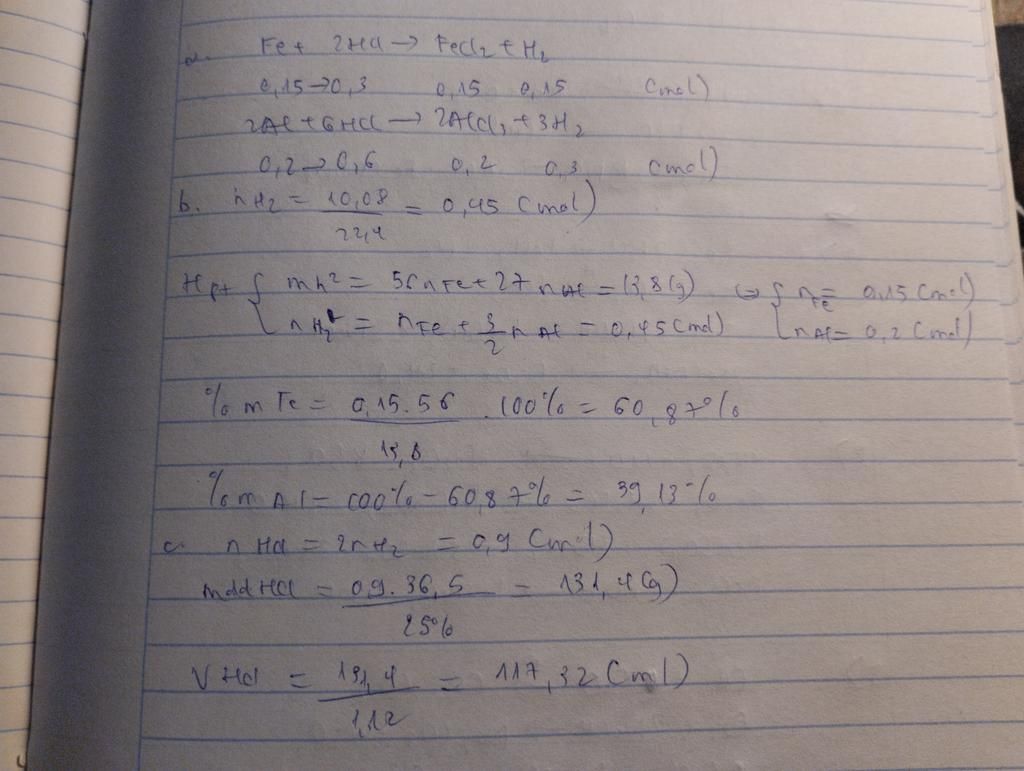 a. Fe + 2HCl → FeCl2 + H2
0,15 → 0,3 0,15 0,15 (mol)
2Al + 6HCl → 2AlCl3 + 3H2
0,2 → 0,6 0,2 0,3 (mol)
b. nH2 = 10,08/22,4 = 0,45 (mol)
Hpt { mh2 = 56nFe + 27nAl = 13,8(g) ⇔ { nFe = 0,15 (mol)
nH2 = nFe + 3/2 nAl = 0,45 (mol) nAl = 0,2 (mol)
%mFe = 0,15.56/13,8 .100% = 60,87%
%mAl = 100% - 60,87% = 39,13%
c. nHCl = 2nH2 = 0,9 (mol)
mddHCl = 0,9.36,5/25% = 131,4(g)
VHCl = 131,4/1,12 = 117,32 (ml)